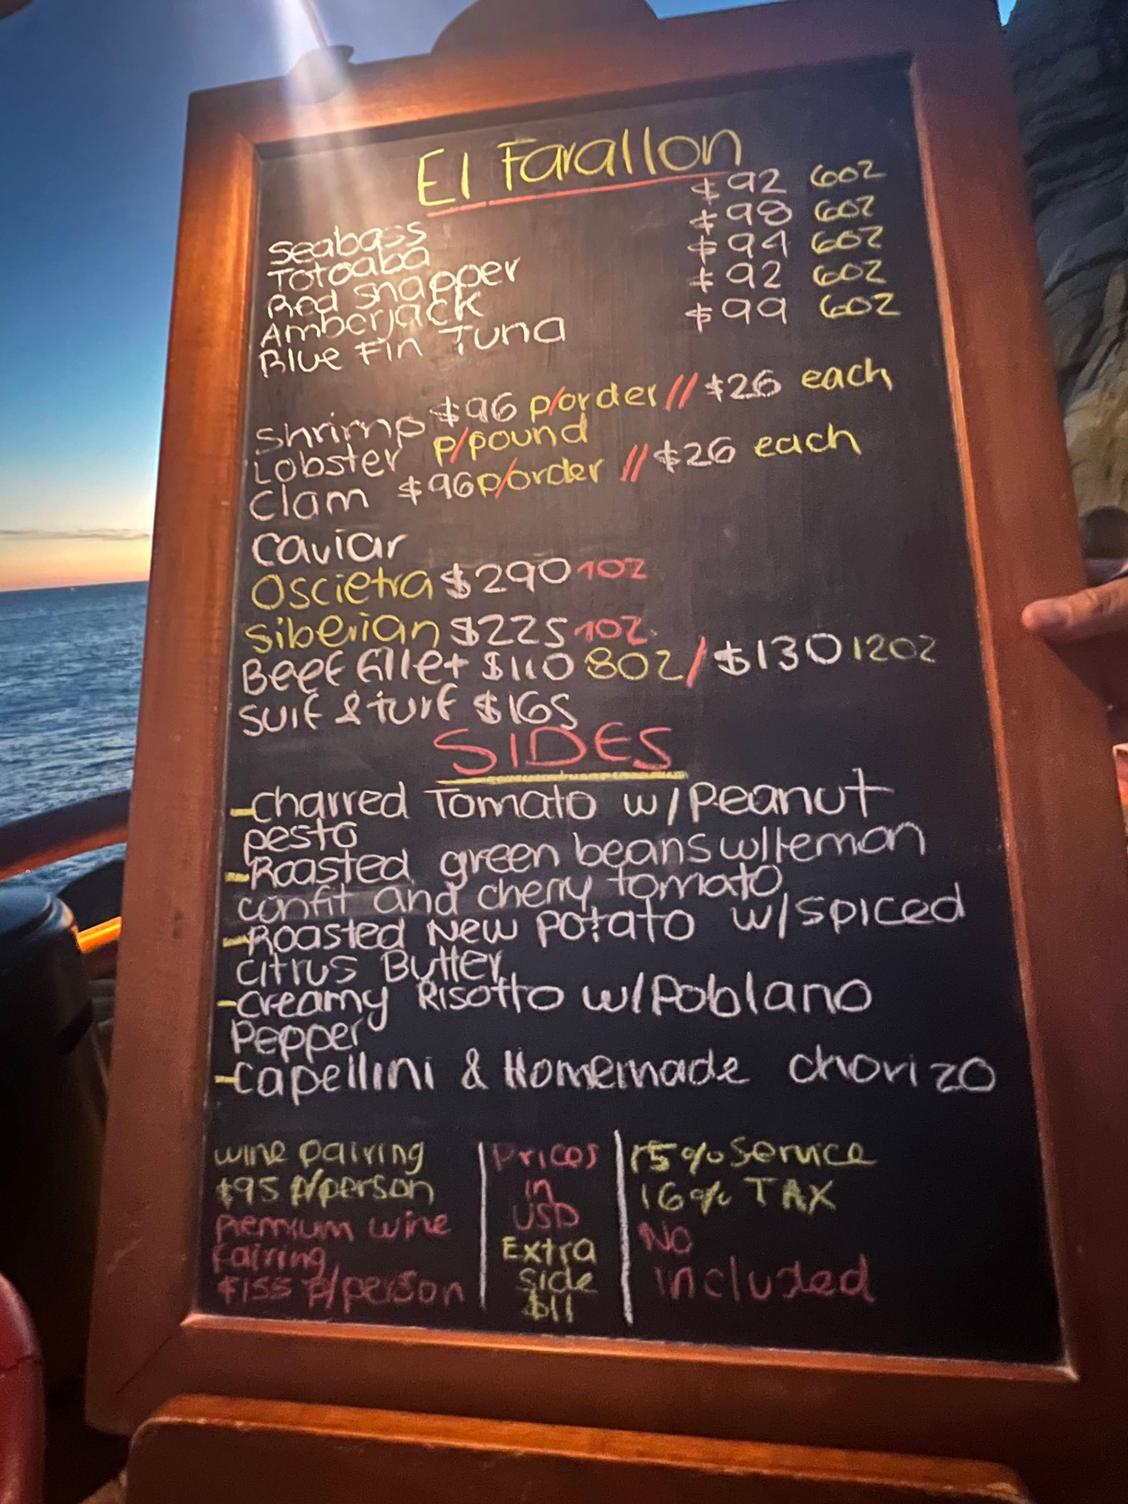 El Farallon
Seabass $92 6oz
Totoaba $98 6oz
Red Snapper $94 6oz
Amberjack $92 6oz
Blue Fin Tuna $99 6oz
Shrimp $96 p/order // $26 each
Lobster p/pound
Clam $96 p/order // $26 each
Caviar
Oscietra $290 1oz
Siberian $225 1oz
Beef fillet $110 8oz / $130 12oz
Surf & turf $165
SIDES
-Charred Tomato w/Peanut
pesto
-Roasted green beans w/lemon
confit and cherry tomato
-Roasted New Potato w/spiced
citrus Butter
-Creamy Risotto w/Poblano
Pepper
-Capellini & Homemade chorizo
wine pairing
$95 p/person
Premium wine
Pairing
$155 p/person
Prices
in
USD
Extra
Side
$11
15% Service
16% TAX
No
included